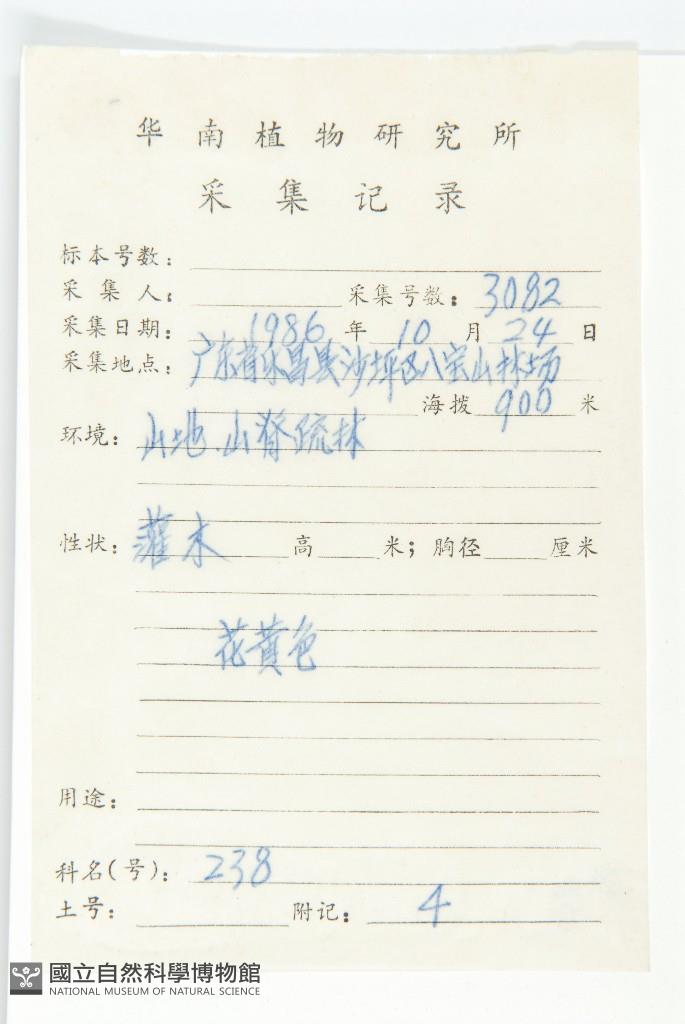 华南植物研究所
采集记录
标本号数：
采集人： 采集号数：3082
采集日期：1986年10月24日
采集地点：广东省乐昌县沙坪区八宝山林场
海拨900米
环境：山地.山脊疏林
性状：灌木 高 米；胸径 厘米
花黄色
用途：
科名(号)：238
土号： 附记：4
國立自然科學博物館
NATIONAL MUSEUM OF NATURAL SCIENCE